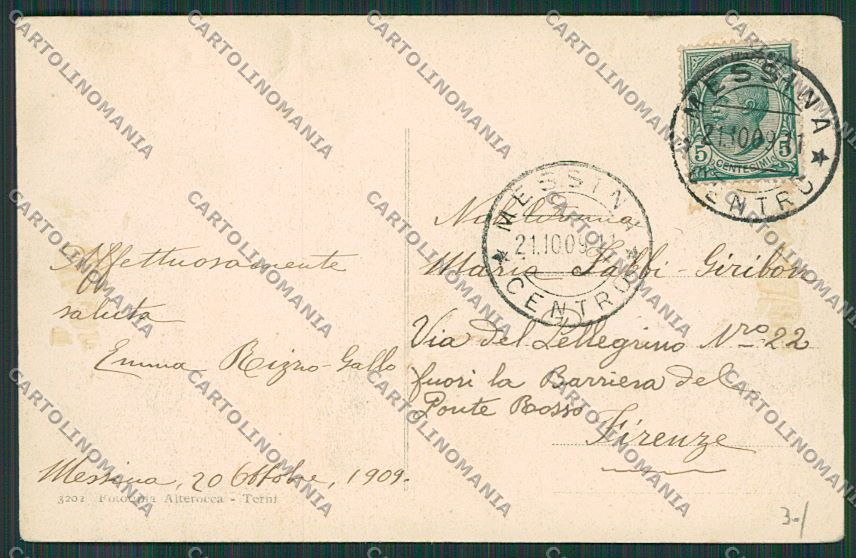 Affettuosamente
saluta
Emma Rizzo-Gallo
Messina, 20 Ottobre, 1909.
3202 Fototipia Alterocca - Terni
MESSINA
21.10.09.11
CENTRO
5 CENTESIMI 5
MESSINA
21.10.09.11
CENTRO
Maria Gabbi-Giribon
Via del Pellegrino Nro 22
fuori la Barriera del
Ponte Rosso
Firenze
3-/
CARTOLINOMANIA